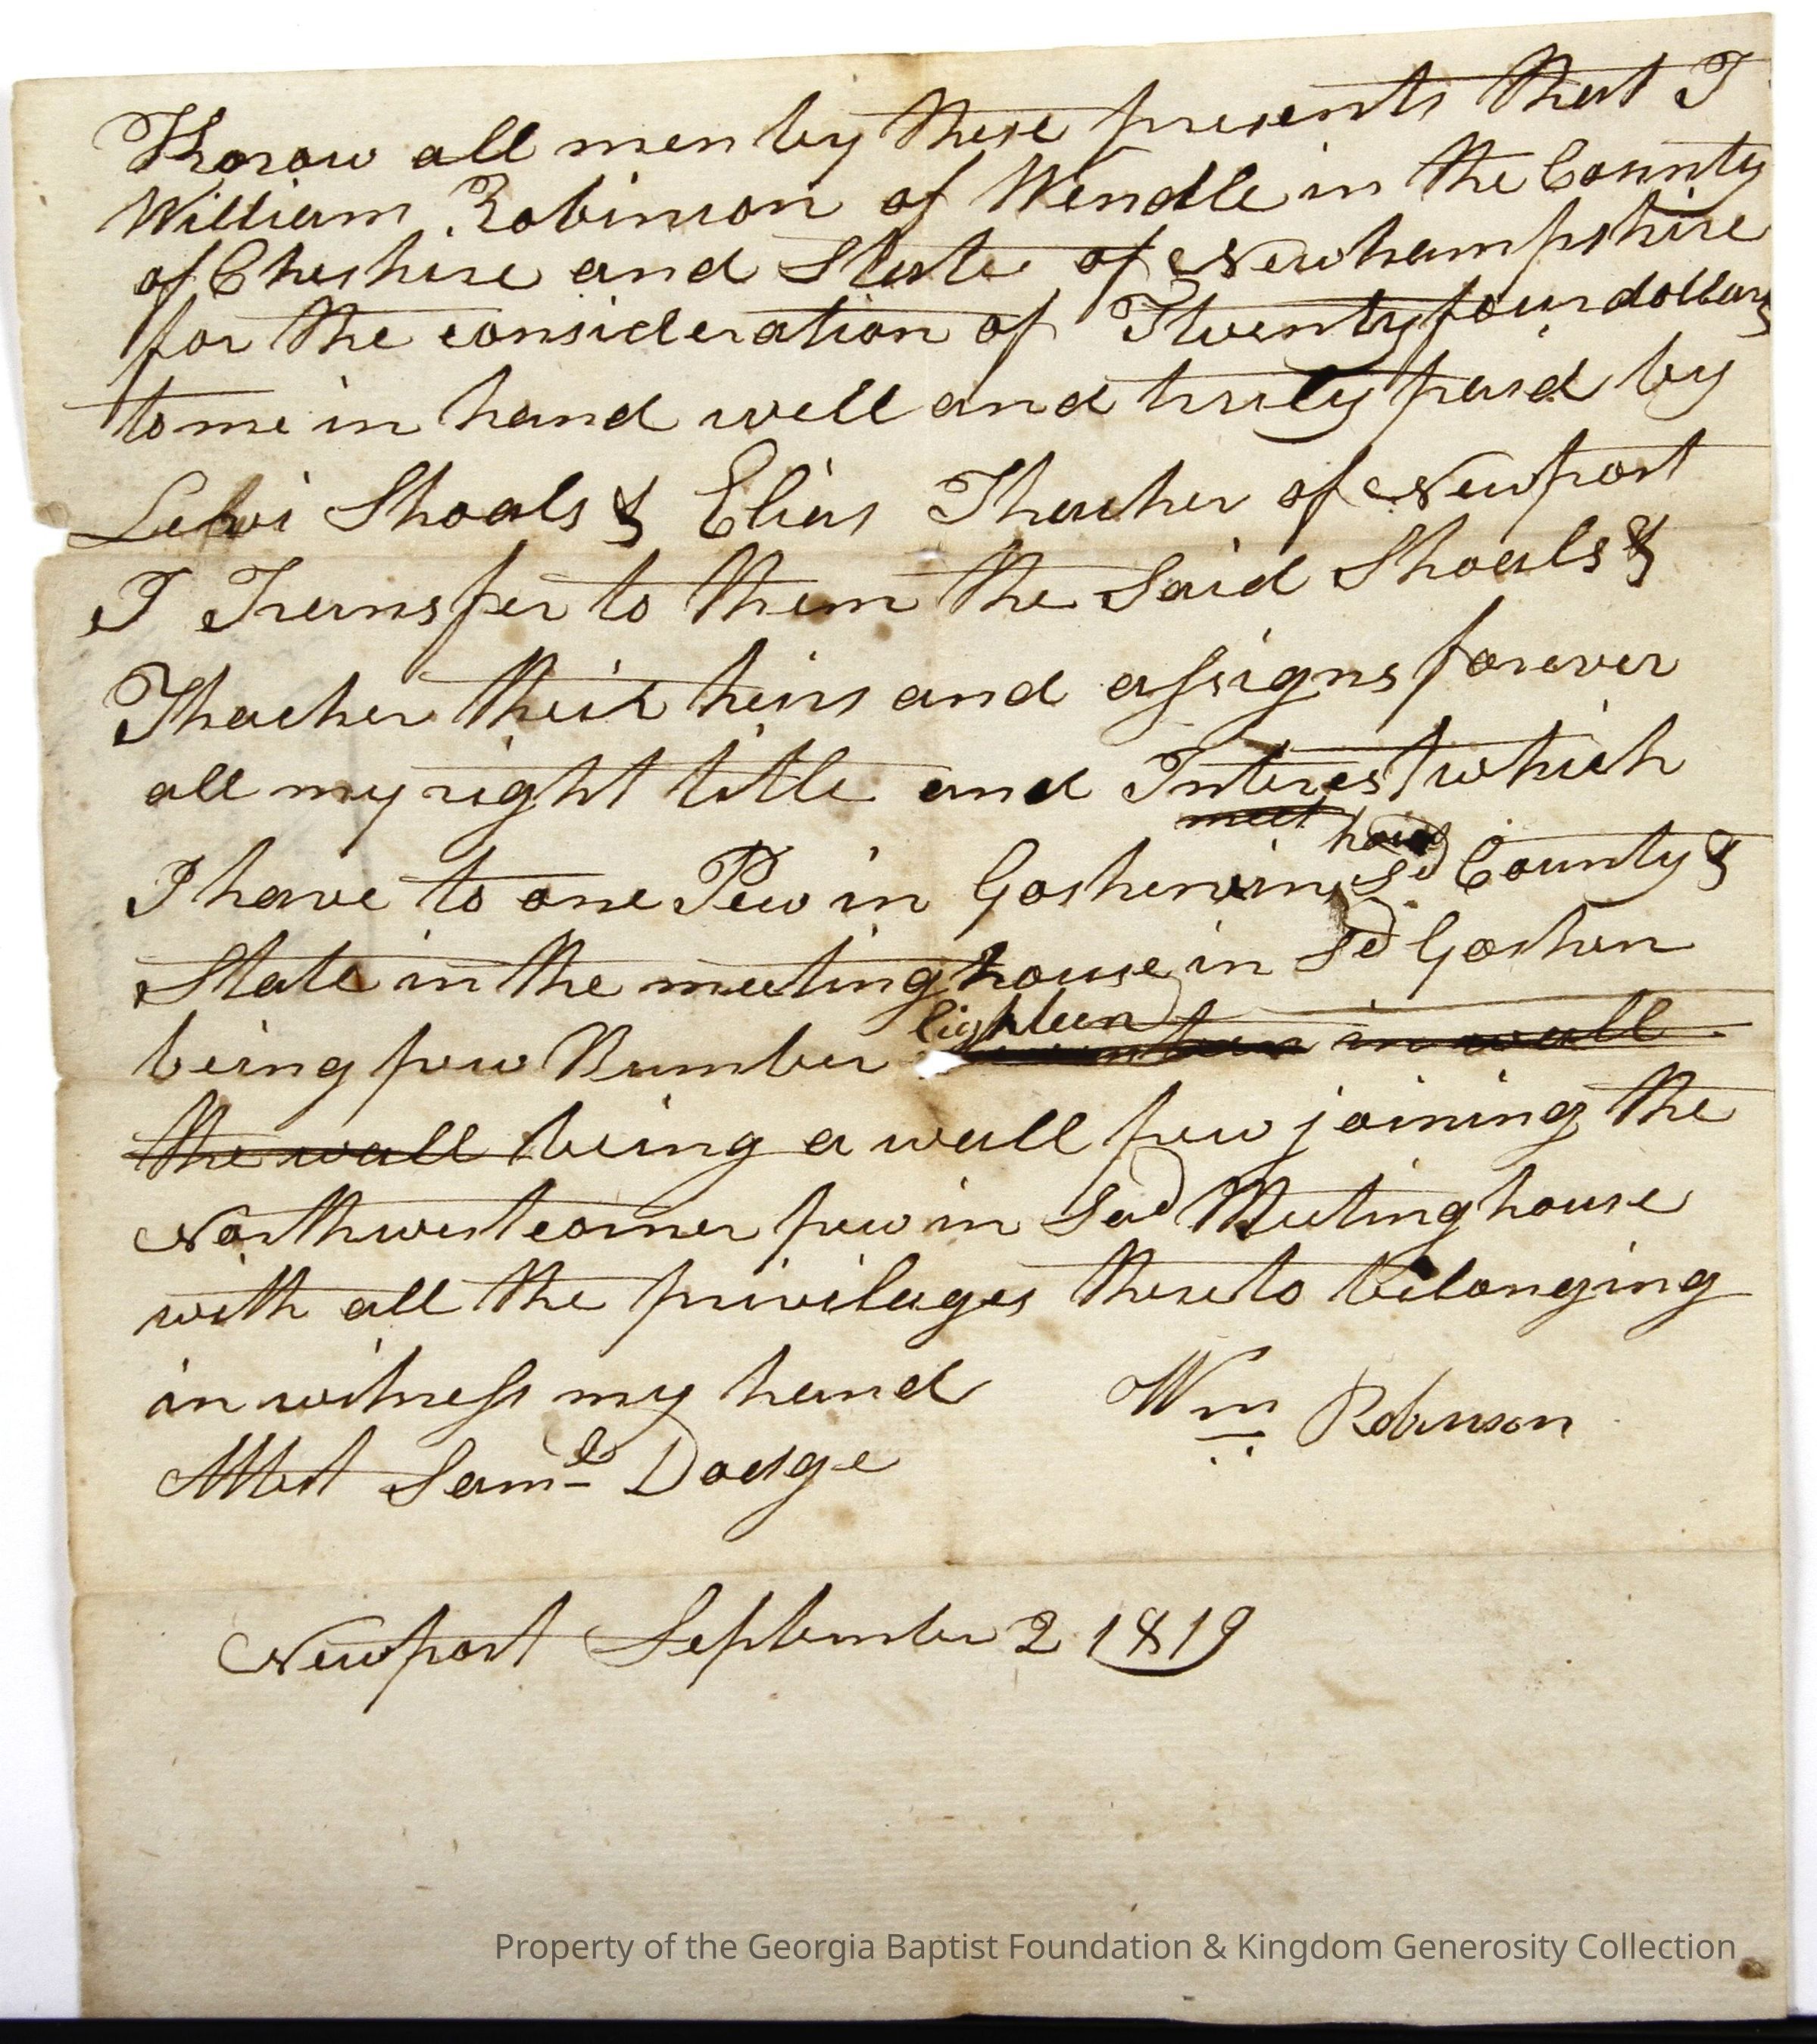 Know all men by these presents that I
William Robinson of Wendle in the County
of Cheshire and State of Newhampshire
for the consideration of Twenty four dollars
to me in hand well and truly paid by
Lewi Shoals & Elias Thacher of Newport
I Transfer to them the Said Shoals &
Thacher their heirs and assigns forever
all my right title and Interest which
meet
I have to one Pew in Goshen in sd County &
State in the meeting house in sd Goshen
Eighteen
being pew Number in wall
the wall being a wall pew joining the
Northwest corner pew in Sad Meeting house
with all the privileges thereto belonging
in witness my hand Wm Robinson
Attest Saml Dodge
Newport September 2 1819
Property of the Georgia Baptist Foundation & Kingdom Generosity Collection